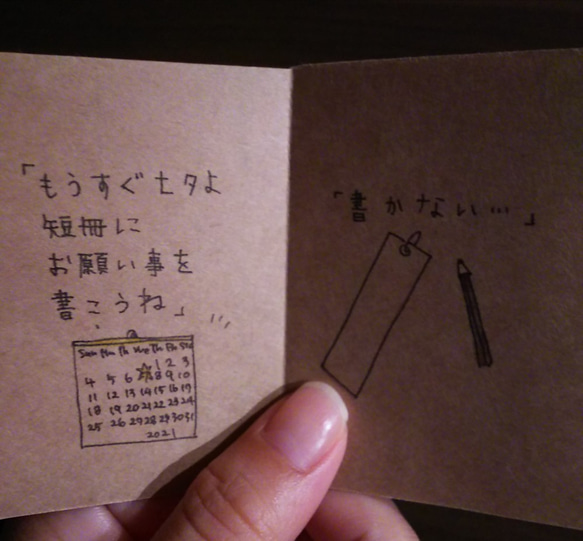 「もうすぐ七夕よ
短冊に
お願い事を
書こうね」
1 2 3
4 5 6 8 9 10
11 12 13 14 15 16 17
18 19 20 21 22 23 24
25 26 27 28 29 30 31
2021
「書かない…」